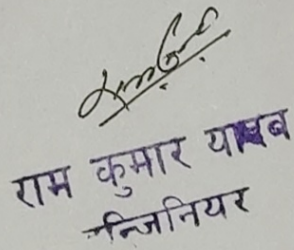 राम कुमार यादव
न्जिनियर